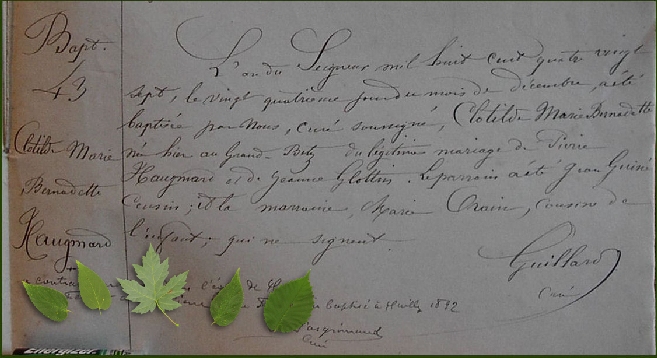 Bapt.
43
Clotilde Marie
Bernadette
Haugmard
L'an du Seigneur mil huit cent quatre vingt
sept, le vingt quatrième jour du mois de décembre, a été
baptisée par Nous, curé soussigné, Clotilde Marie Bernadette
né hier au Grand-Betz du légitime mariage de Pierre
Haugmard et de Jeanne Glottin. Le parrain a été Jean Guiné
Cousin; et la marraine, Marie Orain, cousine de
l'enfant; qui ne signent
Guillard
Curé
baptisé à 1892
Curé
Energizer